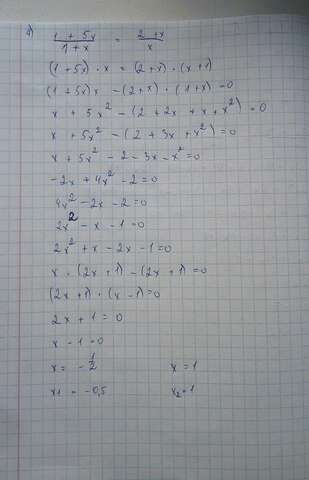 1) (1 + 5x)/(1 + x) = (2 + x)/x
(1 + 5x) · x = (2 + x) · (x + 1)
(1 + 5x)x - (2 + x) · (1 + x) = 0
x + 5x² - (2 + 2x + x + x²) = 0
x + 5x² - (2 + 3x + x²) = 0
x + 5x² - 2 - 3x - x² = 0
-2x + 4x² - 2 = 0
4x² - 2x - 2 = 0
2x² - x - 1 = 0
2x² + x - 2x - 1 = 0
x · (2x + 1) - (2x + 1) = 0
(2x + 1) · (x - 1) = 0
2x + 1 = 0
x - 1 = 0
x = -1/2 x = 1
x1 = -0,5 x₂ = 1